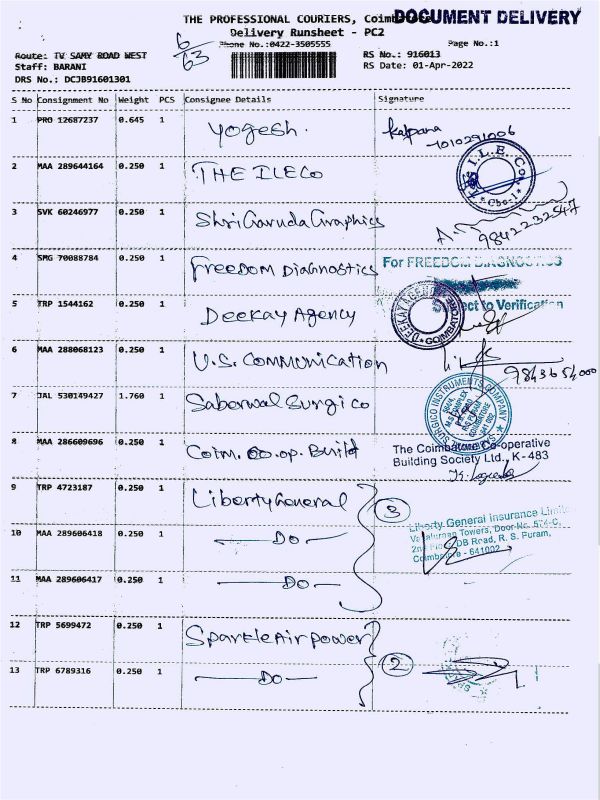 THE PROFESSIONAL COURIERS, Coimbatore
DOCUMENT DELIVERY
Delivery Runsheet - PC2
6/63
Phone No.:0422-3505555
Page No.:1
Route: TV SAMY ROAD WEST
RS No.: 916013
Staff: BARANI
RS Date: 01-Apr-2022
DRS No.: DCJB91601301
S No Consignment No Weight PCS Consignee Details Signature
1 PRO 12687237 0.645 1 Yogesh. Kalpana
2 MAA 289644164 0.250 1 THE ILECo
I.L.E. Co
* Cbe-1 *
3 SVK 60246977 0.250 1 Shri Garuda Graphics
9842232547
4 SMG 70088784 0.250 1 Freedom Diagnostics For FREEDOM DIAGNOSTICS
Subject to Verification
5 TRP 1544162 0.250 1 DEEKAY AGENCY
DEEKAY AGENCY
COIMBATORE
6 MAA 288068123 0.250 1 U.S. Communication
9843654000
7 JAL 530149427 1.760 1 Saberwal Surgico
SURGICO INSTRUMENTS COMPANY
8 MAA 286609696 0.250 1 Coim. Co.op. Build The Coimbatore Co-operative
Building Society Ltd., K-483
9 TRP 4723187 0.250 1 Liberty General 3
Liberty General Insurance Limited
Towers, Door No. 576-C,
DB Road, R. S. Puram,
Coimbatore - 641002
10 MAA 289606418 0.250 1 —Do—
11 MAA 289606417 0.250 1 —Do—
12 TRP 5699472 0.250 1 Sparkle Air power 2
13 TRP 6789316 0.250 1 —Do—